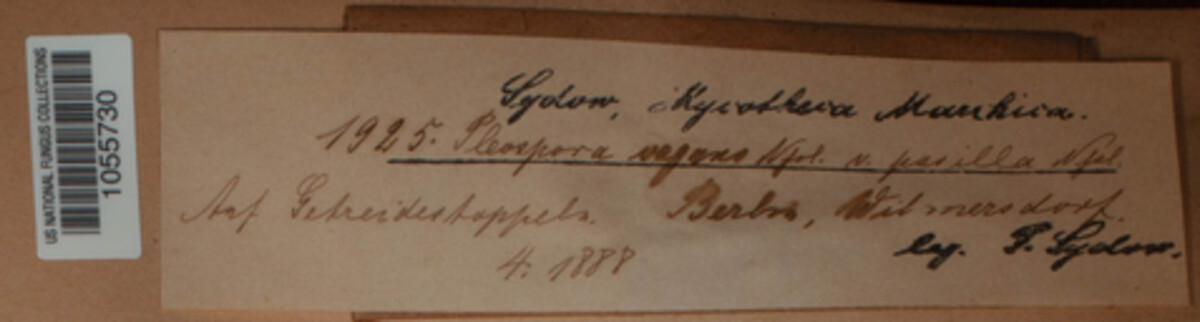 US NATIONAL FUNGUS COLLECTIONS
1055730
Sydow, Mycotheca Marchica.
1925. Pleospora vagans Njsl. v. pusilla Njsl.
Auf Getreidestoppeln. Berlin, Wilmersdorf.
4. 1888
leg. P. Sydow.